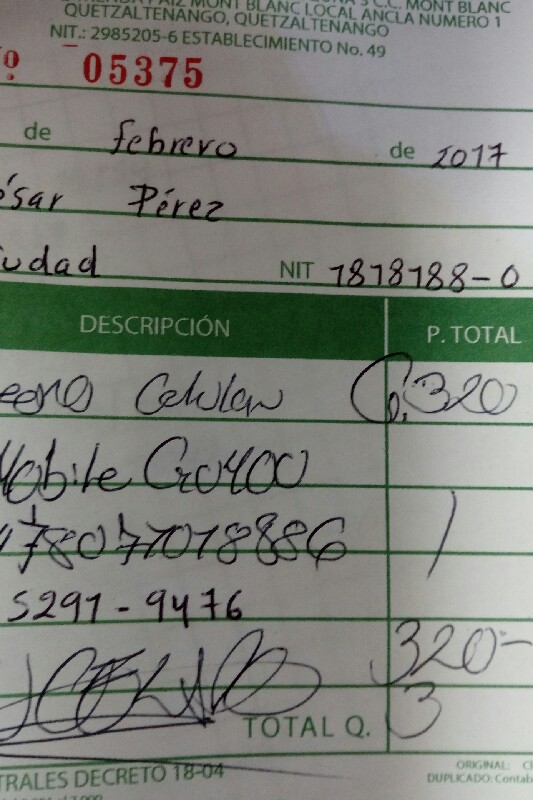 MONT BLANC LOCAL ANCLA NUMERO 1
QUETZALTENANGO, QUETZALTENANGO
NIT.: 2985205-6 ESTABLECIMIENTO No. 49
05375
de febrero de 2017
ósar Pérez
iudad NIT 7878788-0
DESCRIPCIÓN P. TOTAL
Celular Q.320
Mobile Go400
5291-9476
320-
3
TOTAL Q.
TRALES DECRETO 18-04
ORIGINAL:
DUPLICADO: Contab